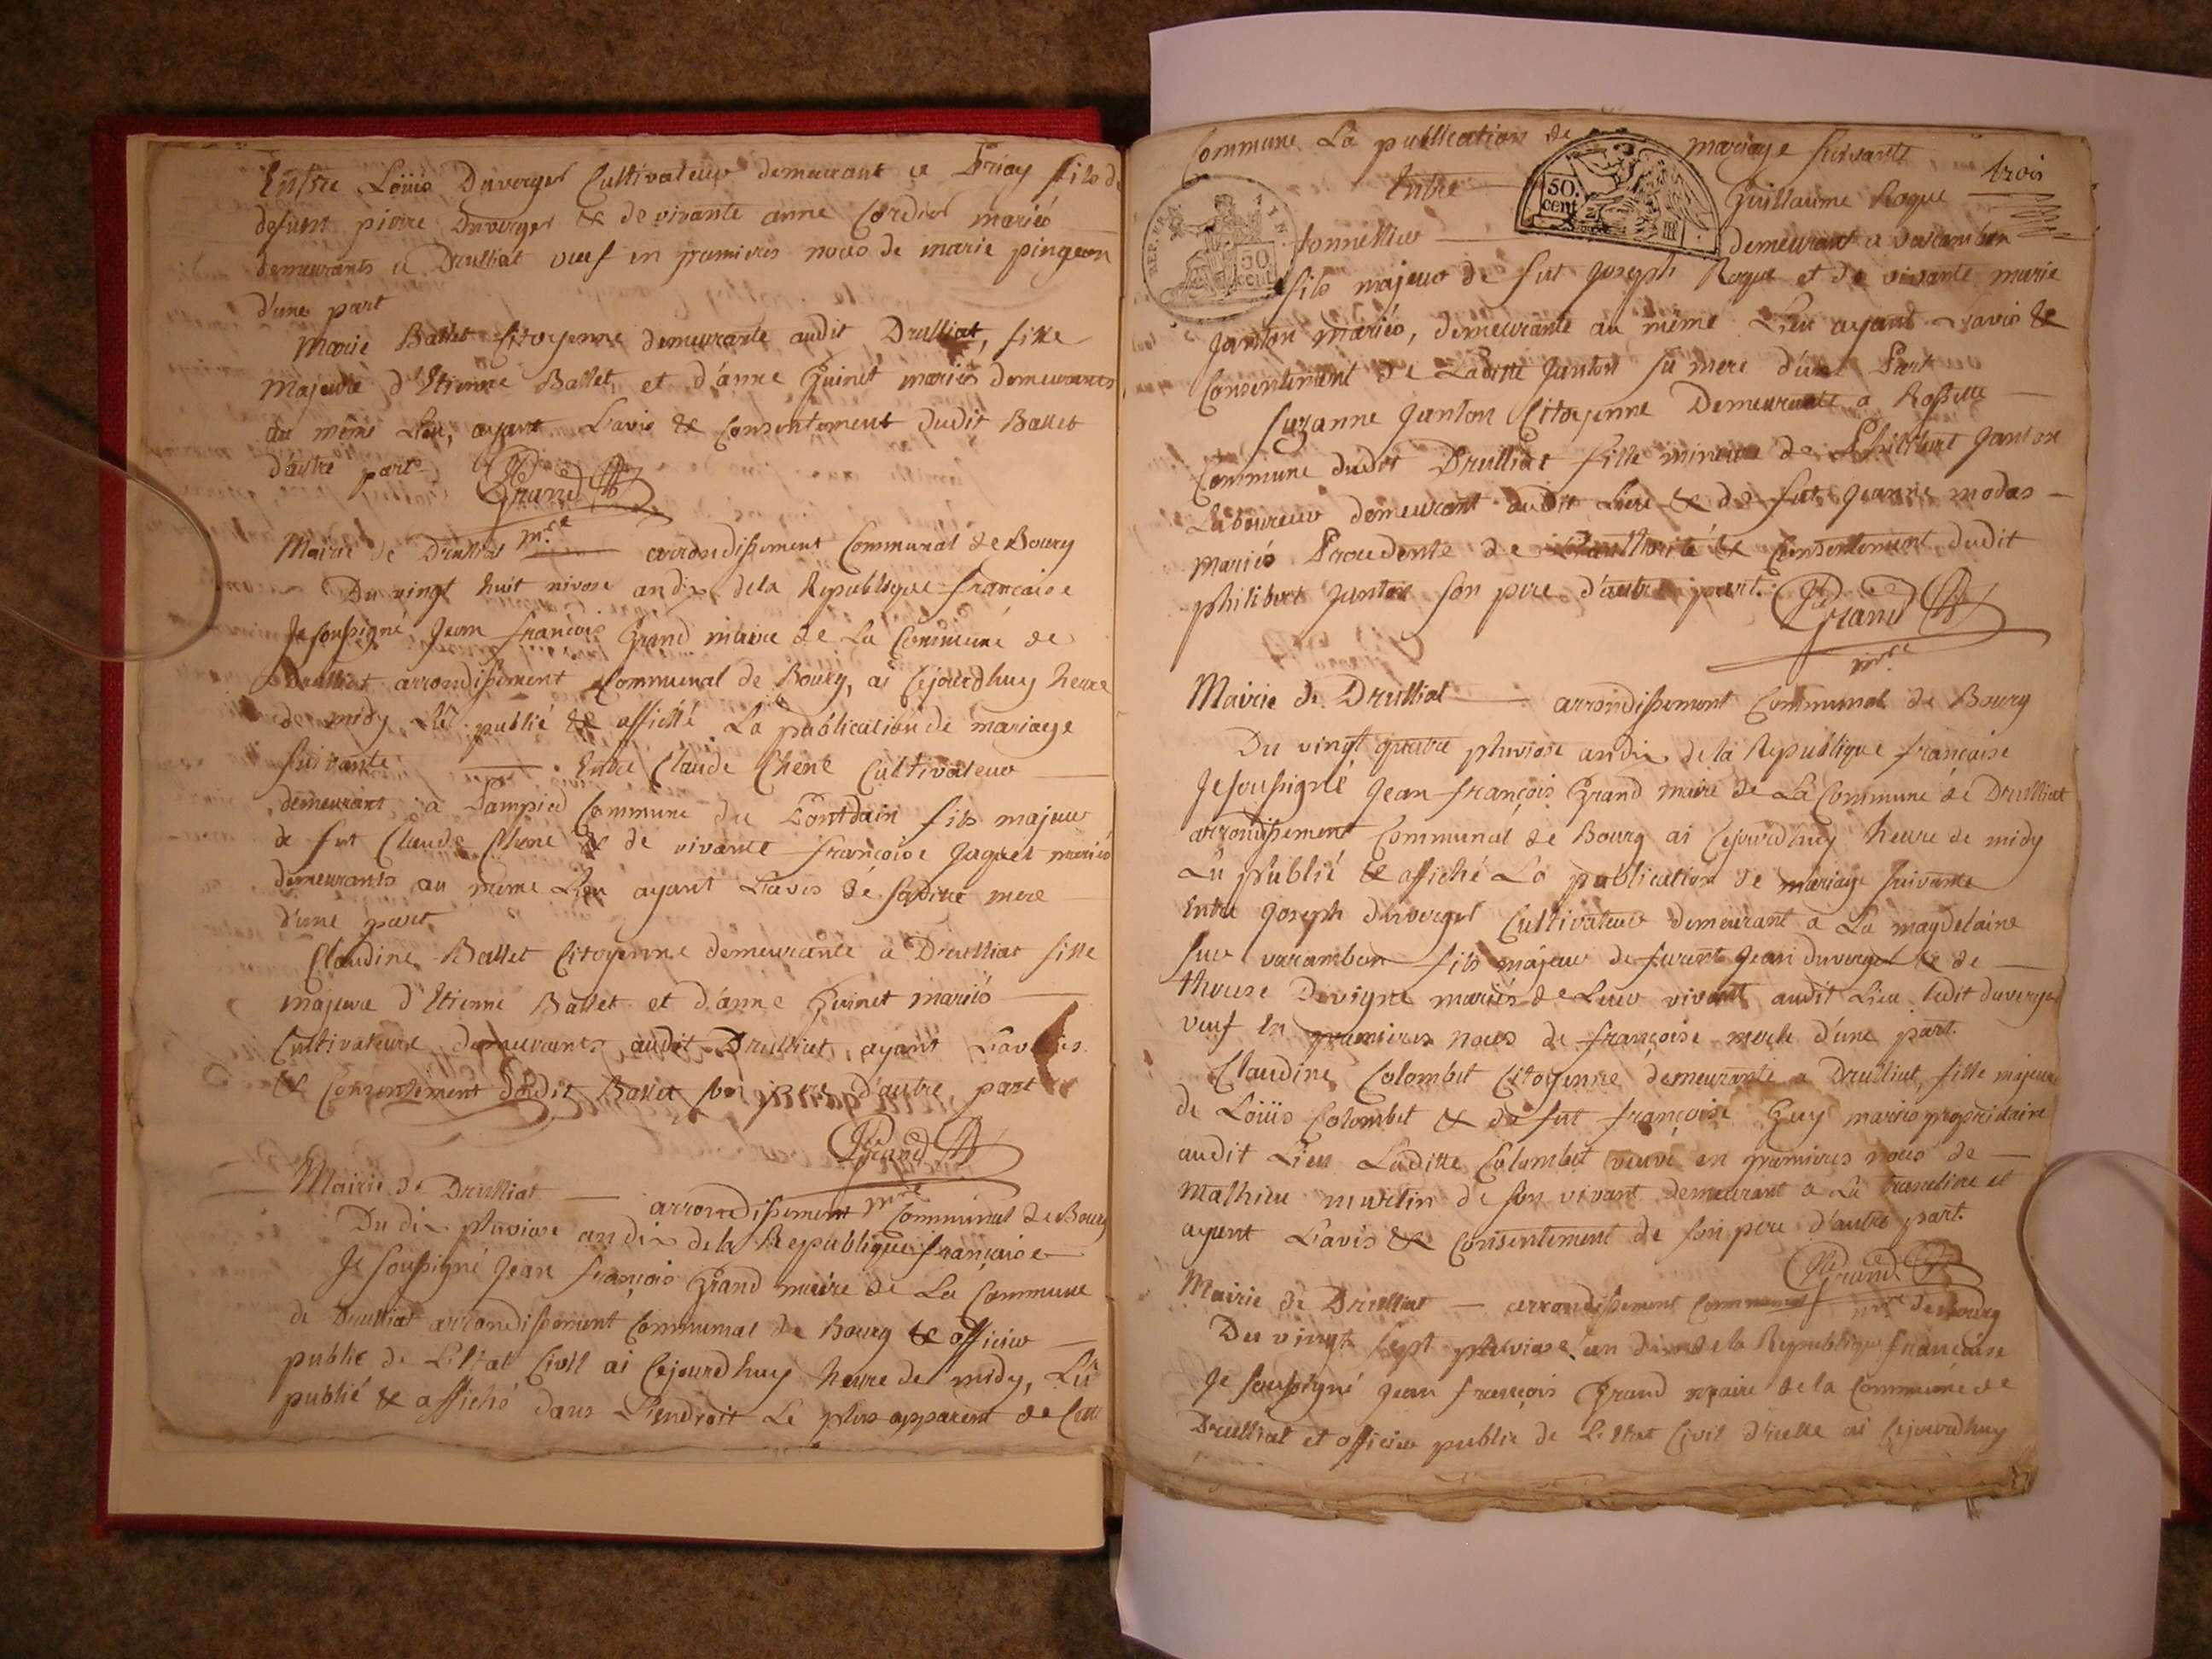 Entre Loüis Duverger Cultivateur demeurant a Priay fils de
defunt pierre Duverger & de vivante anne Cordier mariés
demeurants a Drulliat veuf en premieres noces de marie pingeon
d'une part
Marie Ballet Citoyenne demeurante audit Drulliat, fille
majeure d'Etienne Ballet et d'anne Guinet mariés demeurants
au même Lieu, ayant L'avis & Consentement dudit Ballet
d'autre part
Grand
mre
Mairie de Drulliat arrondissement Communal de Bourg
Du vingt huit nivose an dix de la Republique francaise
Je soussigné Jean françois Grand maire de La Commune de
Drulliat arrondissement Communal de Bourg, ai Cejourdhuy heure
de midy Lû publié & affiché La publication de mariage
suivante Entre Claude Chene Cultivateur
demeurant a Commune du Pontdain fils majeur
de fut Claude Chene & de vivante francoise Jaquet mariés
demeurants au meme Lieu ayant L'avis de saditte mere
d'une part
Claudine Ballet Citoyenne demeurante a Drulliat fille
majeure d'Etienne Ballet et d'anne Guinet mariés
Cultivateurs demeurants audit Drulliat, ayant L'avis
& Consentement dudit Ballet son pere d'autre part
Grand
mre
Mairie de Drulliat arrondissement Communal de Bourg
Du dix pluviose an dix de la Republique francaise
Je soussigné Jean françois Grand maire de La Commune
de Drulliat arrondissement Communal de Bourg & officier
public de L'Etat Civil ai Cejourdhuy heure de midy, Lû
publié & affiché dans L'endroit Le plus apparent de Cette
Commune La publication de mariage suivante
trois
50. cent
REP. FRA.
50 cent
Entre Guillaume Roque
tonnellier demeurant a Varambon
fils majeur de fut Joseph Roque et de vivante marie
Janton mariés, demeurante au même Lieu ayant L'avis &
Consentement de Laditte Janton sa mere d'une Part
Suzanne Janton Citoyenne Demeurante a Rossette
Commune dudit Drulliat fille mineure de Philibert Janton
Laboureur demeurant audit Lieu & de fut Jeanne modas
mariés Procedente de L'authorité & Consentement dudit
philibert Janton son pere d'autre part.
Grand
mre
Mairie de Drulliat arrondissement Communal de Bourg
Du vingt quatre pluviose an dix de la Republique française
Je soussigné Jean françois Grand maire de La Commune de Drulliat
arrondissement Communal de Bourg ai Cejourdhuy heure de midy
Lû publié & affiché La publication de mariage suivante
Entre Joseph duverger Cultivateur demeurant a La magdelaine
sur varambon fils majeur de Jean duverger & de
therese Devigne mariés de Leur vivant audit Lieu Ledit duverger
veuf En premieres noces de françoise merle d'une part.
Claudine Colombet Citoyenne demeurante a Drulliat, fille majeure
de Loüis Colombet & de fut françoise Guy mariés propriétaire
audit Lieu Laditte Colombet veuve en premieres noces de
Mathieu martin de son vivant demeurant a La et
ayant L'avis & Consentement de son pere d'autre part.
Grand
mre
Mairie de Drulliat arrondissement Communal de Bourg
Du vingt sept pluviose an dix de la Republique francaise
Je soussigné Jean françois Grand maire de la Commune de
Drulliat et officier public de L'Etat Civil d'icelle ai Cejourdhuy